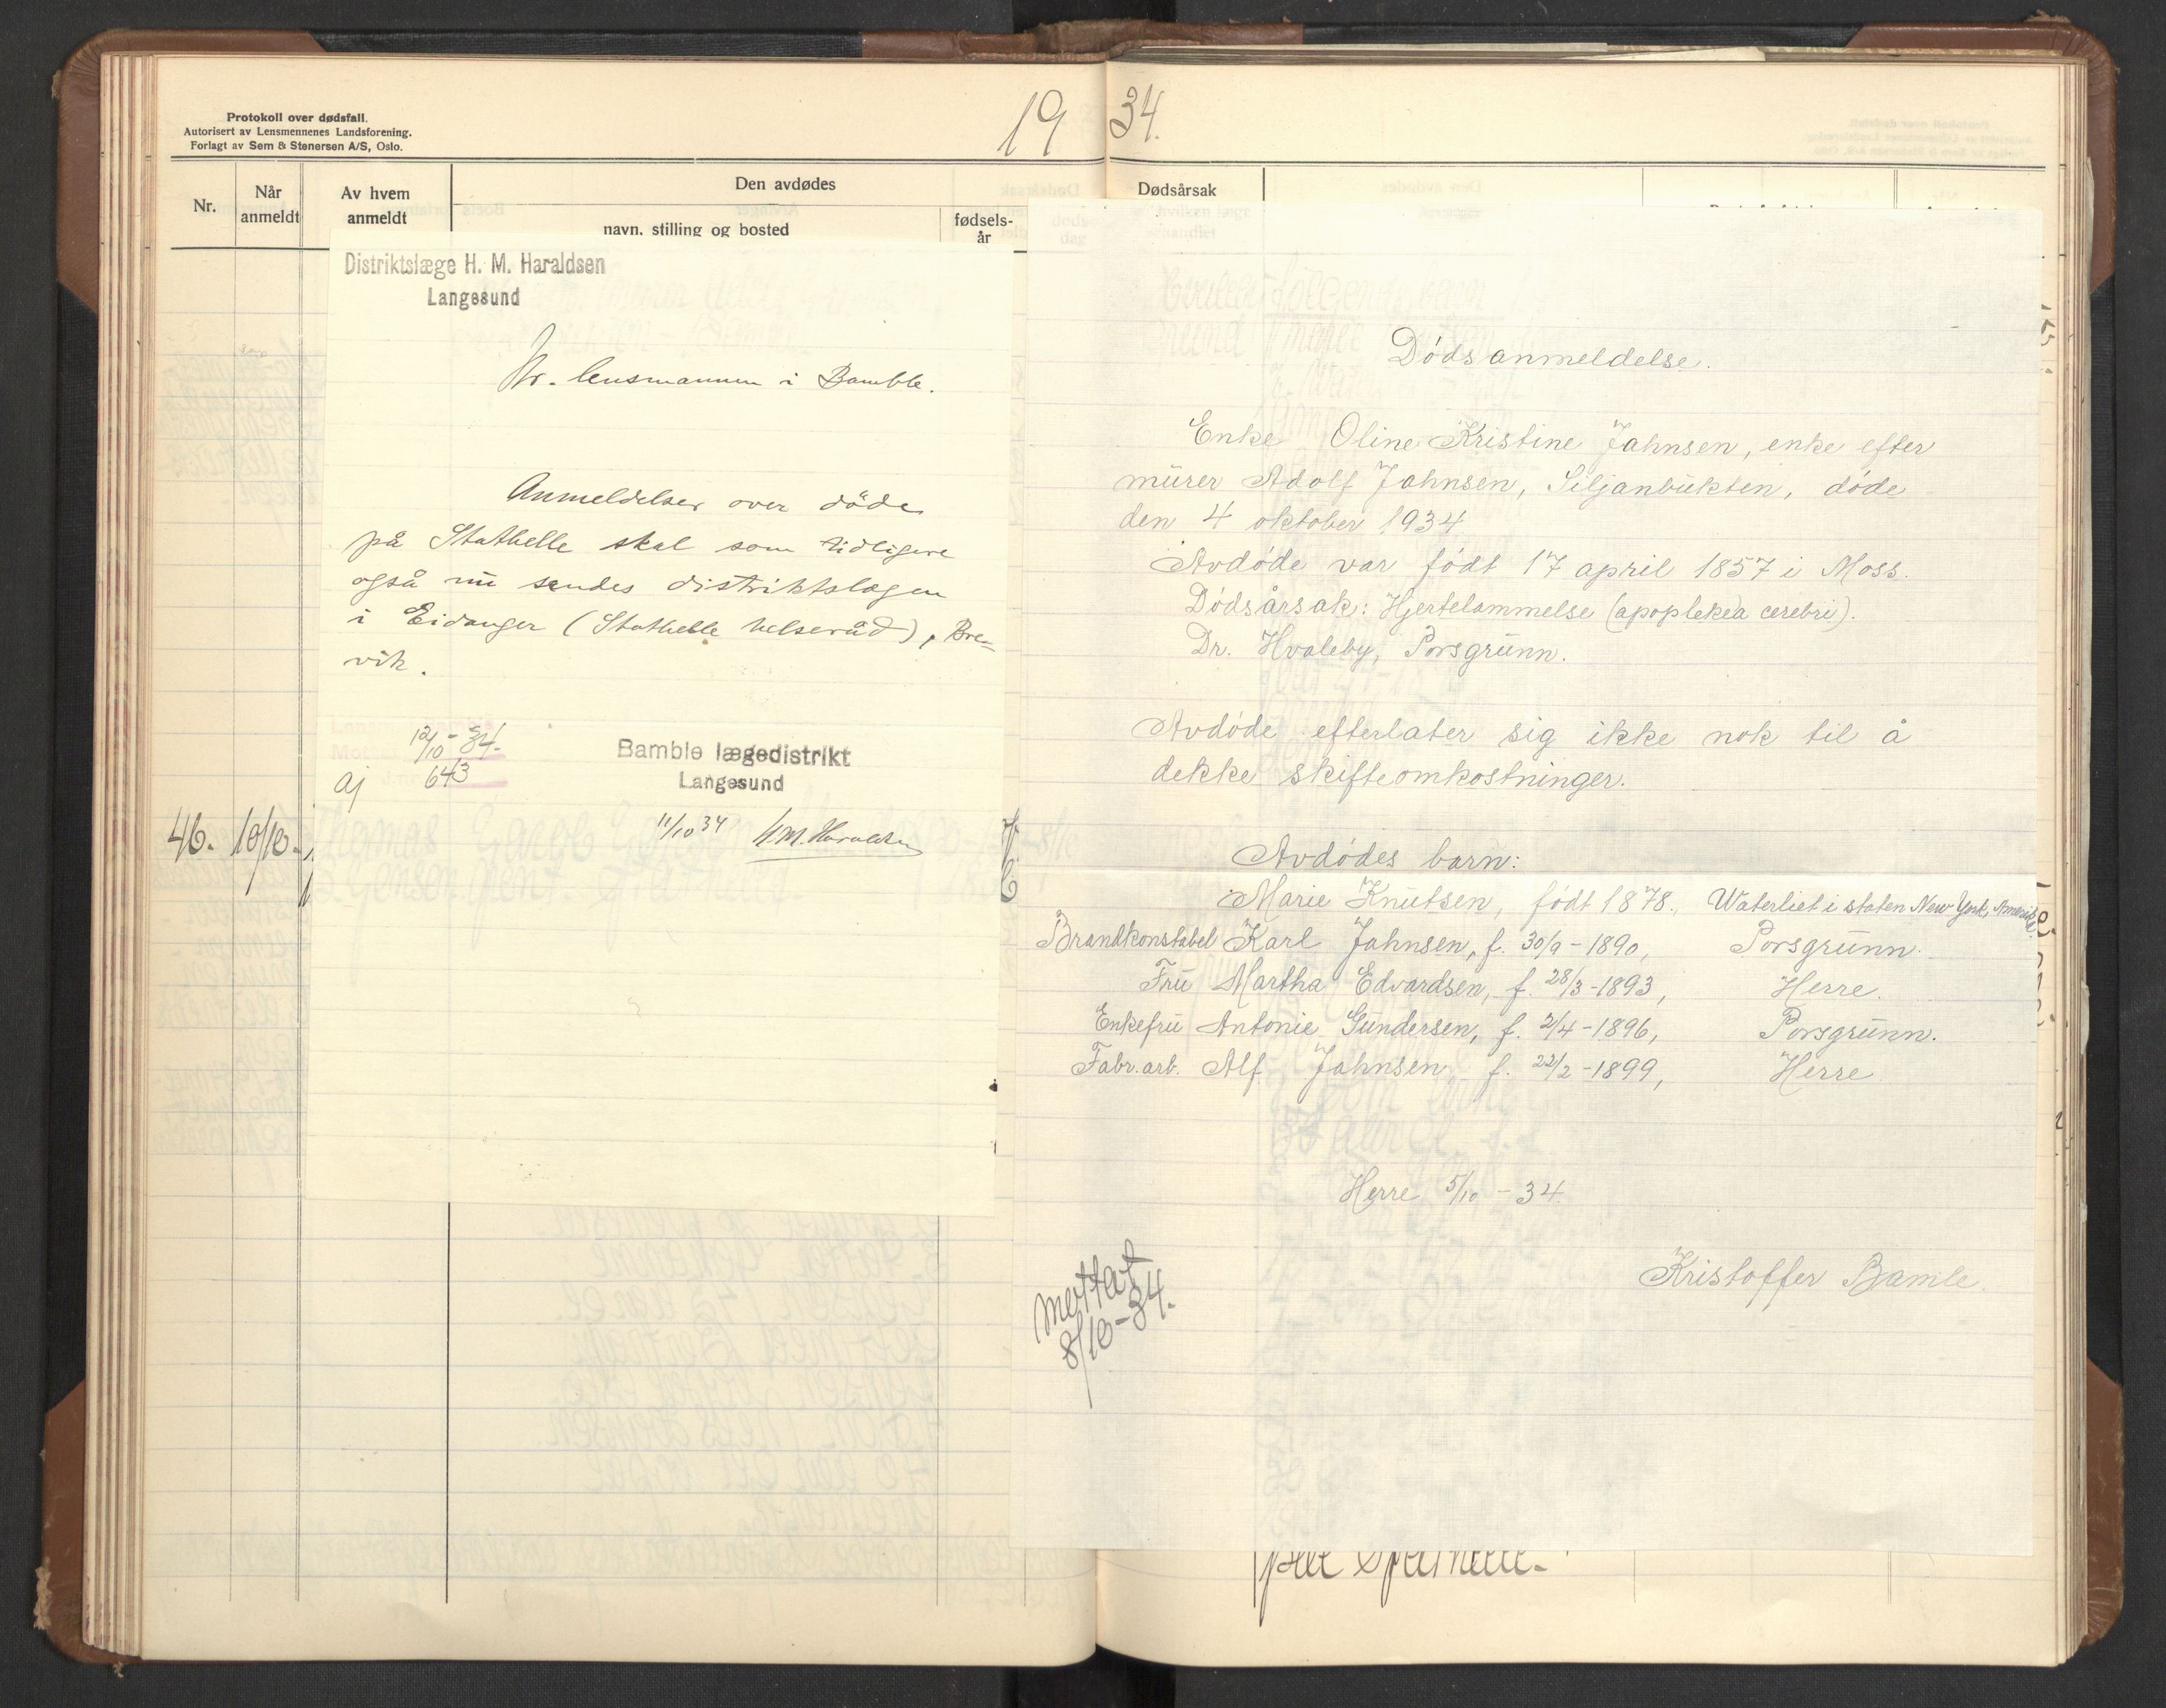 Protokoll over dødsfall.
Autorisert av Lensmennenes Landsforening.
Forlagt av Sem & Stenersen A/S, Oslo.
19 34.
Nr.
Når
anmeldt
Av hvem
anmeldt
Den avdødes
navn, stilling og bosted
fødsels-
år
Distriktslæge H. M. Haraldsen
Langesund
Hr. lensmannen i Bamble.
Anmeldelser over döde
på Stathelle skal som tidligere
også nu sendes distriktslægen
i Eidanger (Stathelle helseråd), Bre-
vik.
12/10-34.
aj 643
Bamble lægedistrikt
Langesund
11/10 34 H.M. Haraldsen
46. 10/10.
Dødsårsak
Dødsanmeldelse.
Enke Oline Kristine Jahnsen, enke efter
murer Adolf Jahnsen, Siljanbukten, døde
den 4 oktober 1934
Avdøde var født 17 april 1857 i Moss.
Dødsårsak: Hjertelammelse (apoplekea cerebri).
Dr. Hvaleby, Porsgrunn.
Avdøde efterlater sig ikke nok til å
dekke skifteomkostninger.
Avdødes barn:
Marie Knutsen, født 1878., Waterliet i staten New York, Amerika.
Brandkonstabel Karl Jahnsen, f. 30/9-1890, Porsgrunn.
Fru Martha Edvardsen, f. 28/3-1893, Herre.
Enkefru Antonie Gundersen, f. 2/4-1896, Porsgrunn.
Fabr.arb. Alf Jahnsen f. 22/2-1899, Herre
Herre 5/10-34.
Kristoffer Bamle.
mottat
8/10-34.